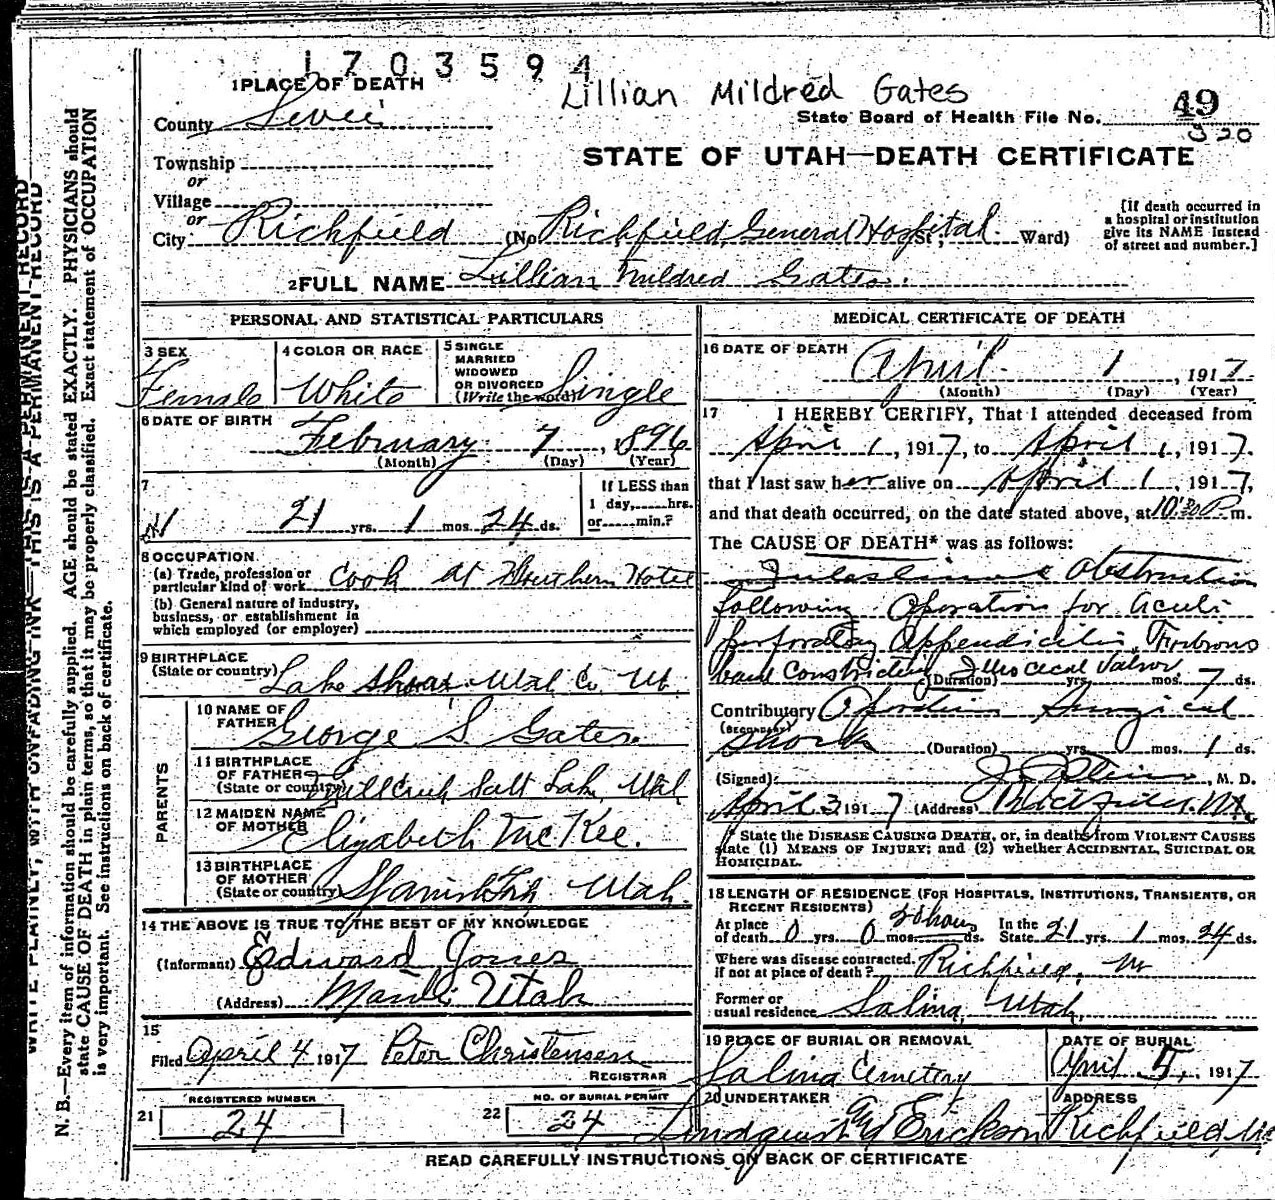 1703594
Lillian Mildred Gates
1 PLACE OF DEATH
County Sevier
State Board of Health File No. 49
320
Township
or
Village
or
STATE OF UTAH—DEATH CERTIFICATE
City Richfield (No Richfield General Hospital St; Ward)
[If death occurred in a hospital or institution give its NAME instead of street and number.]
2 FULL NAME Lillian Mildred Gates.
PERSONAL AND STATISTICAL PARTICULARS
3 SEX Female
4 COLOR OR RACE White
5 SINGLE MARRIED WIDOWED OR DIVORCED (Write the word) Single
6 DATE OF BIRTH February 7, 1896
(Month) (Day) (Year)
7 21 yrs. 1 mos. 24 ds.
If LESS than 1 day, hrs. or min.?
8 OCCUPATION
(a) Trade, profession or particular kind of work Cook at Southern Hotel
(b) General nature of industry, business, or establishment in which employed (or employer)
9 BIRTHPLACE (State or country) Lake Shore Utah Co. Ut.
PARENTS
10 NAME OF FATHER George S. Gates.
11 BIRTHPLACE OF FATHER (State or country) Millcreek Salt Lake, Utah
12 MAIDEN NAME OF MOTHER Elizabeth McKee.
13 BIRTHPLACE OF MOTHER (State or country) Spanish Fork Utah
14 THE ABOVE IS TRUE TO THE BEST OF MY KNOWLEDGE
(Informant) Edward Jones
(Address) Manti Utah
15
Filed April 4 1917 Peter Christensen
REGISTRAR
21 REGISTERED NUMBER 24
22 NO. OF BURIAL PERMIT 24
MEDICAL CERTIFICATE OF DEATH
16 DATE OF DEATH April 1, 1917
(Month) (Day) (Year)
17 I HEREBY CERTIFY, That I attended deceased from
April 1, 1917, to April 1, 1917.
that I last saw her alive on April 1, 1917,
and that death occurred, on the date stated above, at 10:30 P. m.
The CAUSE OF DEATH* was as follows:
Intestinal Obstruction
following Operation for acute
perforating Appendicitis. Fibrous
band Constricting Ileocecal Valve
(Duration) yrs. mos. 7 ds.
Contributory (Secondary) Operation Surgical
Shock (Duration) yrs. 0 mos. 1 ds.
(Signed) M. D.
April 3 1917 (Address) Richfield, Ut.
* State the DISEASE CAUSING DEATH, or, in deaths from VIOLENT CAUSES
state (1) MEANS OF INJURY; and (2) whether ACCIDENTAL, SUICIDAL OR
HOMICIDAL.
18 LENGTH OF RESIDENCE (FOR HOSPITALS, INSTITUTIONS, TRANSIENTS, OR
RECENT RESIDENTS)
At place of death 0 yrs. 0 mos. hours ds. In the State 21 yrs. 1 mos. 24 ds.
Where was disease contracted, if not at place of death? Richfield, Ut
Former or usual residence Salina, Utah,
19 PLACE OF BURIAL OR REMOVAL Salina Cemetery
DATE OF BURIAL April 5, 1917
20 UNDERTAKER Lindquist Erickson
ADDRESS Richfield, Ut
READ CAREFULLY INSTRUCTIONS ON BACK OF CERTIFICATE
WRITE PLAINLY, WITH UNFADING INK—THIS IS A PERMANENT RECORD
N. B.—Every item of information should be carefully supplied. AGE should be stated EXACTLY. PHYSICIANS should
state CAUSE OF DEATH in plain terms, so that it may be properly classified. Exact statement of OCCUPATION
is very important. See instructions on back of certificate.